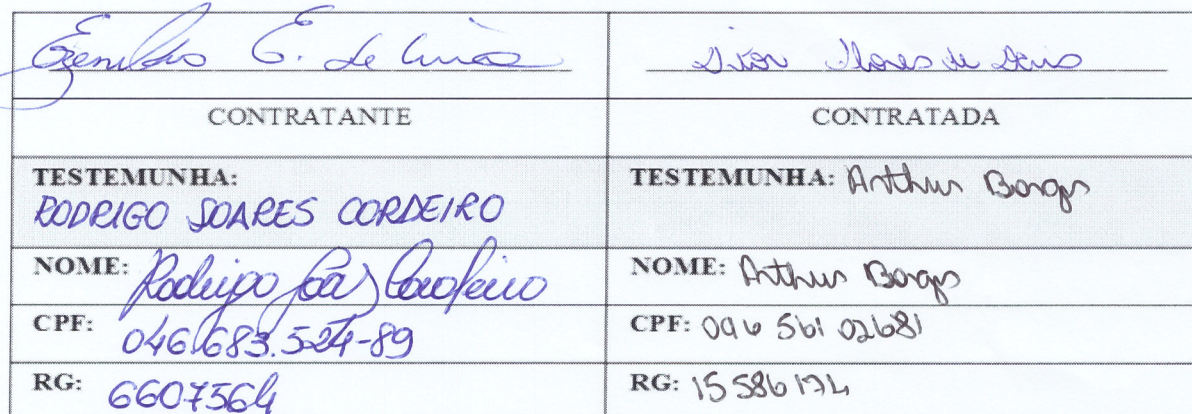 G. de
de
CONTRATANTE
CONTRATADA
TESTEMUNHA:
RODRIGO SOARES CORDEIRO
TESTEMUNHA: Arthur Borges
NOME: Rodrigo Soares Cordeiro
NOME: Arthur Borges
CPF: 046.683.524-89
CPF: 096 561 02681
RG: 6607564
RG: